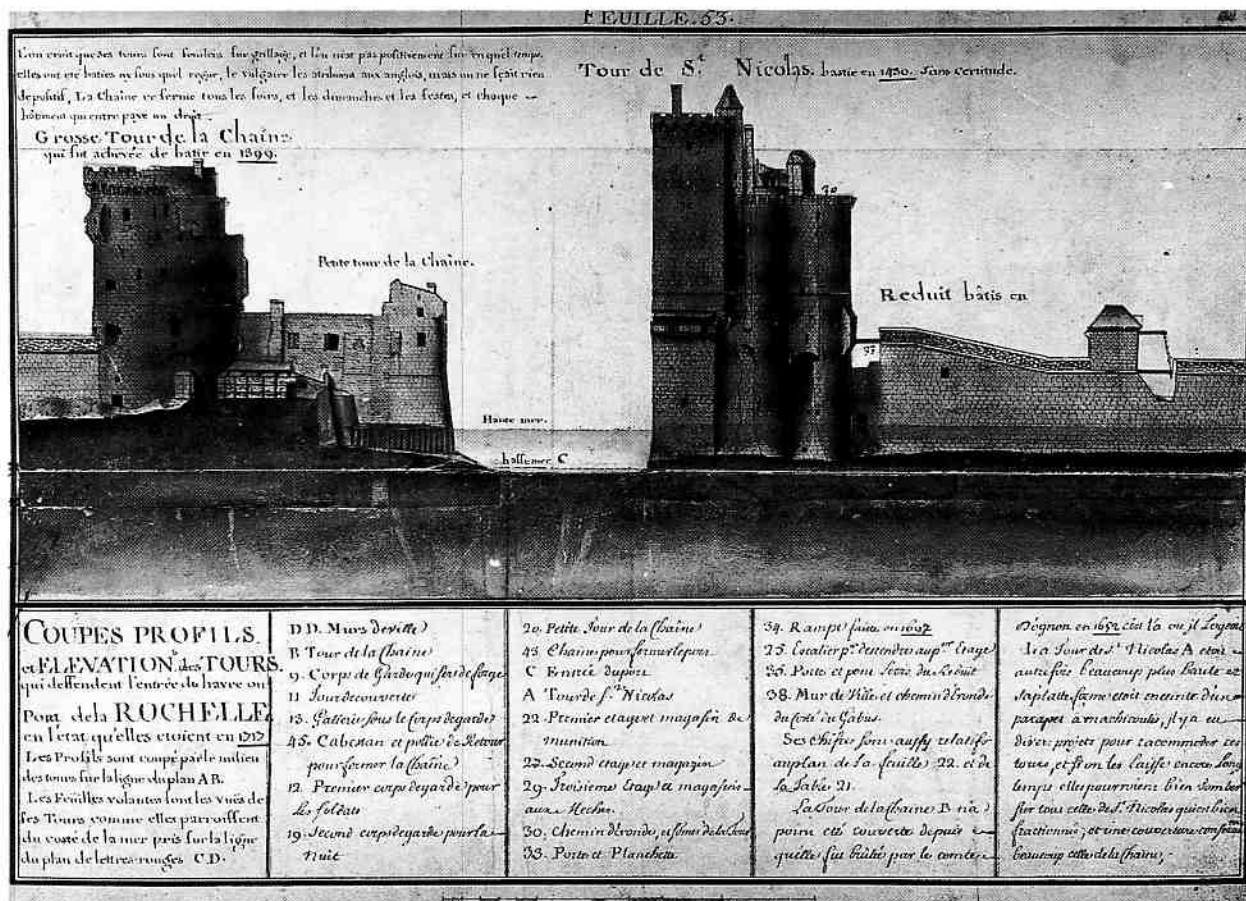 FEUILLE. 53.
L'on croit que ses tours sont fondeés sur grillage, et l'on n'est pas positivement sur en quel temps
elles ont eté baties ny sous quel regne, le vulgaire les atribuent aux anglois, mais on ne sçait rien
de positif, La Chaîne se ferme tous les soirs, et les dimanches et les festes, et chaque
bâtiment qui entre paye un droit.
Grosse Tour de la Chaîne
qui fut achevée de batir en 1399.
Tour de St. Nicolas. bastie en 1430. sans certitude.
Petite tour de la Chaîne.
30
Reduit bâtis en
37
Haute mer.
basse mer C
COUPES PROFILS.
et ELEVATIONs. des TOURS.
qui deffendent l'entrée du havre ou
Port de la ROCHELLE
en l'état qu'elles etoient en 1717
Les Profils sont coupé par le milieu
des tours sur la ligne du plan A B.
Les Feuilles volantes sont les vuës de
ses Tours comme elles parroissent
du costé de la mer pris sur la ligne
du plan de lettres rouges C.D.
D D. Murs de ville
B Tour de la Chaîne
9. Corps de Garde qui sert de forge
11 Tour decouverte
13. Gallerie sous le Corps de garde
45. Cabestan et pollie de Retour
pour fermer la Chaîne
12. Premier corps de garde pour
Les soldats
19. Second corps de garde pour la
nuit
20. Petite Tour de la Chaîne
43. Chaîne pour fermer le port
C Entrée du port
A Tour de St. Nicolas
22. Premier etage et magasin de
munition
27. Second etage et magazin
29. Troisieme Etage et magasin
aux Meches
30. Chemin de ronde, et de la Tour
33. Porte et Planchette
34. Rampe faite en 1697
25. Escalier pr. descendre au pr. Etage
35. Porte et pont levis du Reduit
38. Mur de Ville et chemin de ronde
du Costé du Gabus.
Ses chifres sont aussy relatifs
au plan de la feuille 22. et de
La Table 21.
La Tour de la Chaîne B n'a
point eté couverte depuis
qu'elle fut brûlée par le comte
Dognon en 1652 c'est la ou il Logeoit
La Tour de St. Nicolas A etoit
autrefois beaucoup plus haute et
sa platte forme etoit enceinte d'un
parapet à machicoulis, il y a eu
divers projets pour racommoder ces
tours, et si on les laisse encore long
temps elles pourroient bien tomber
sur tous celle de St. Nicolas qui est bien
fractionnée, et une couverture
beaucoup celle de la Chaîne.